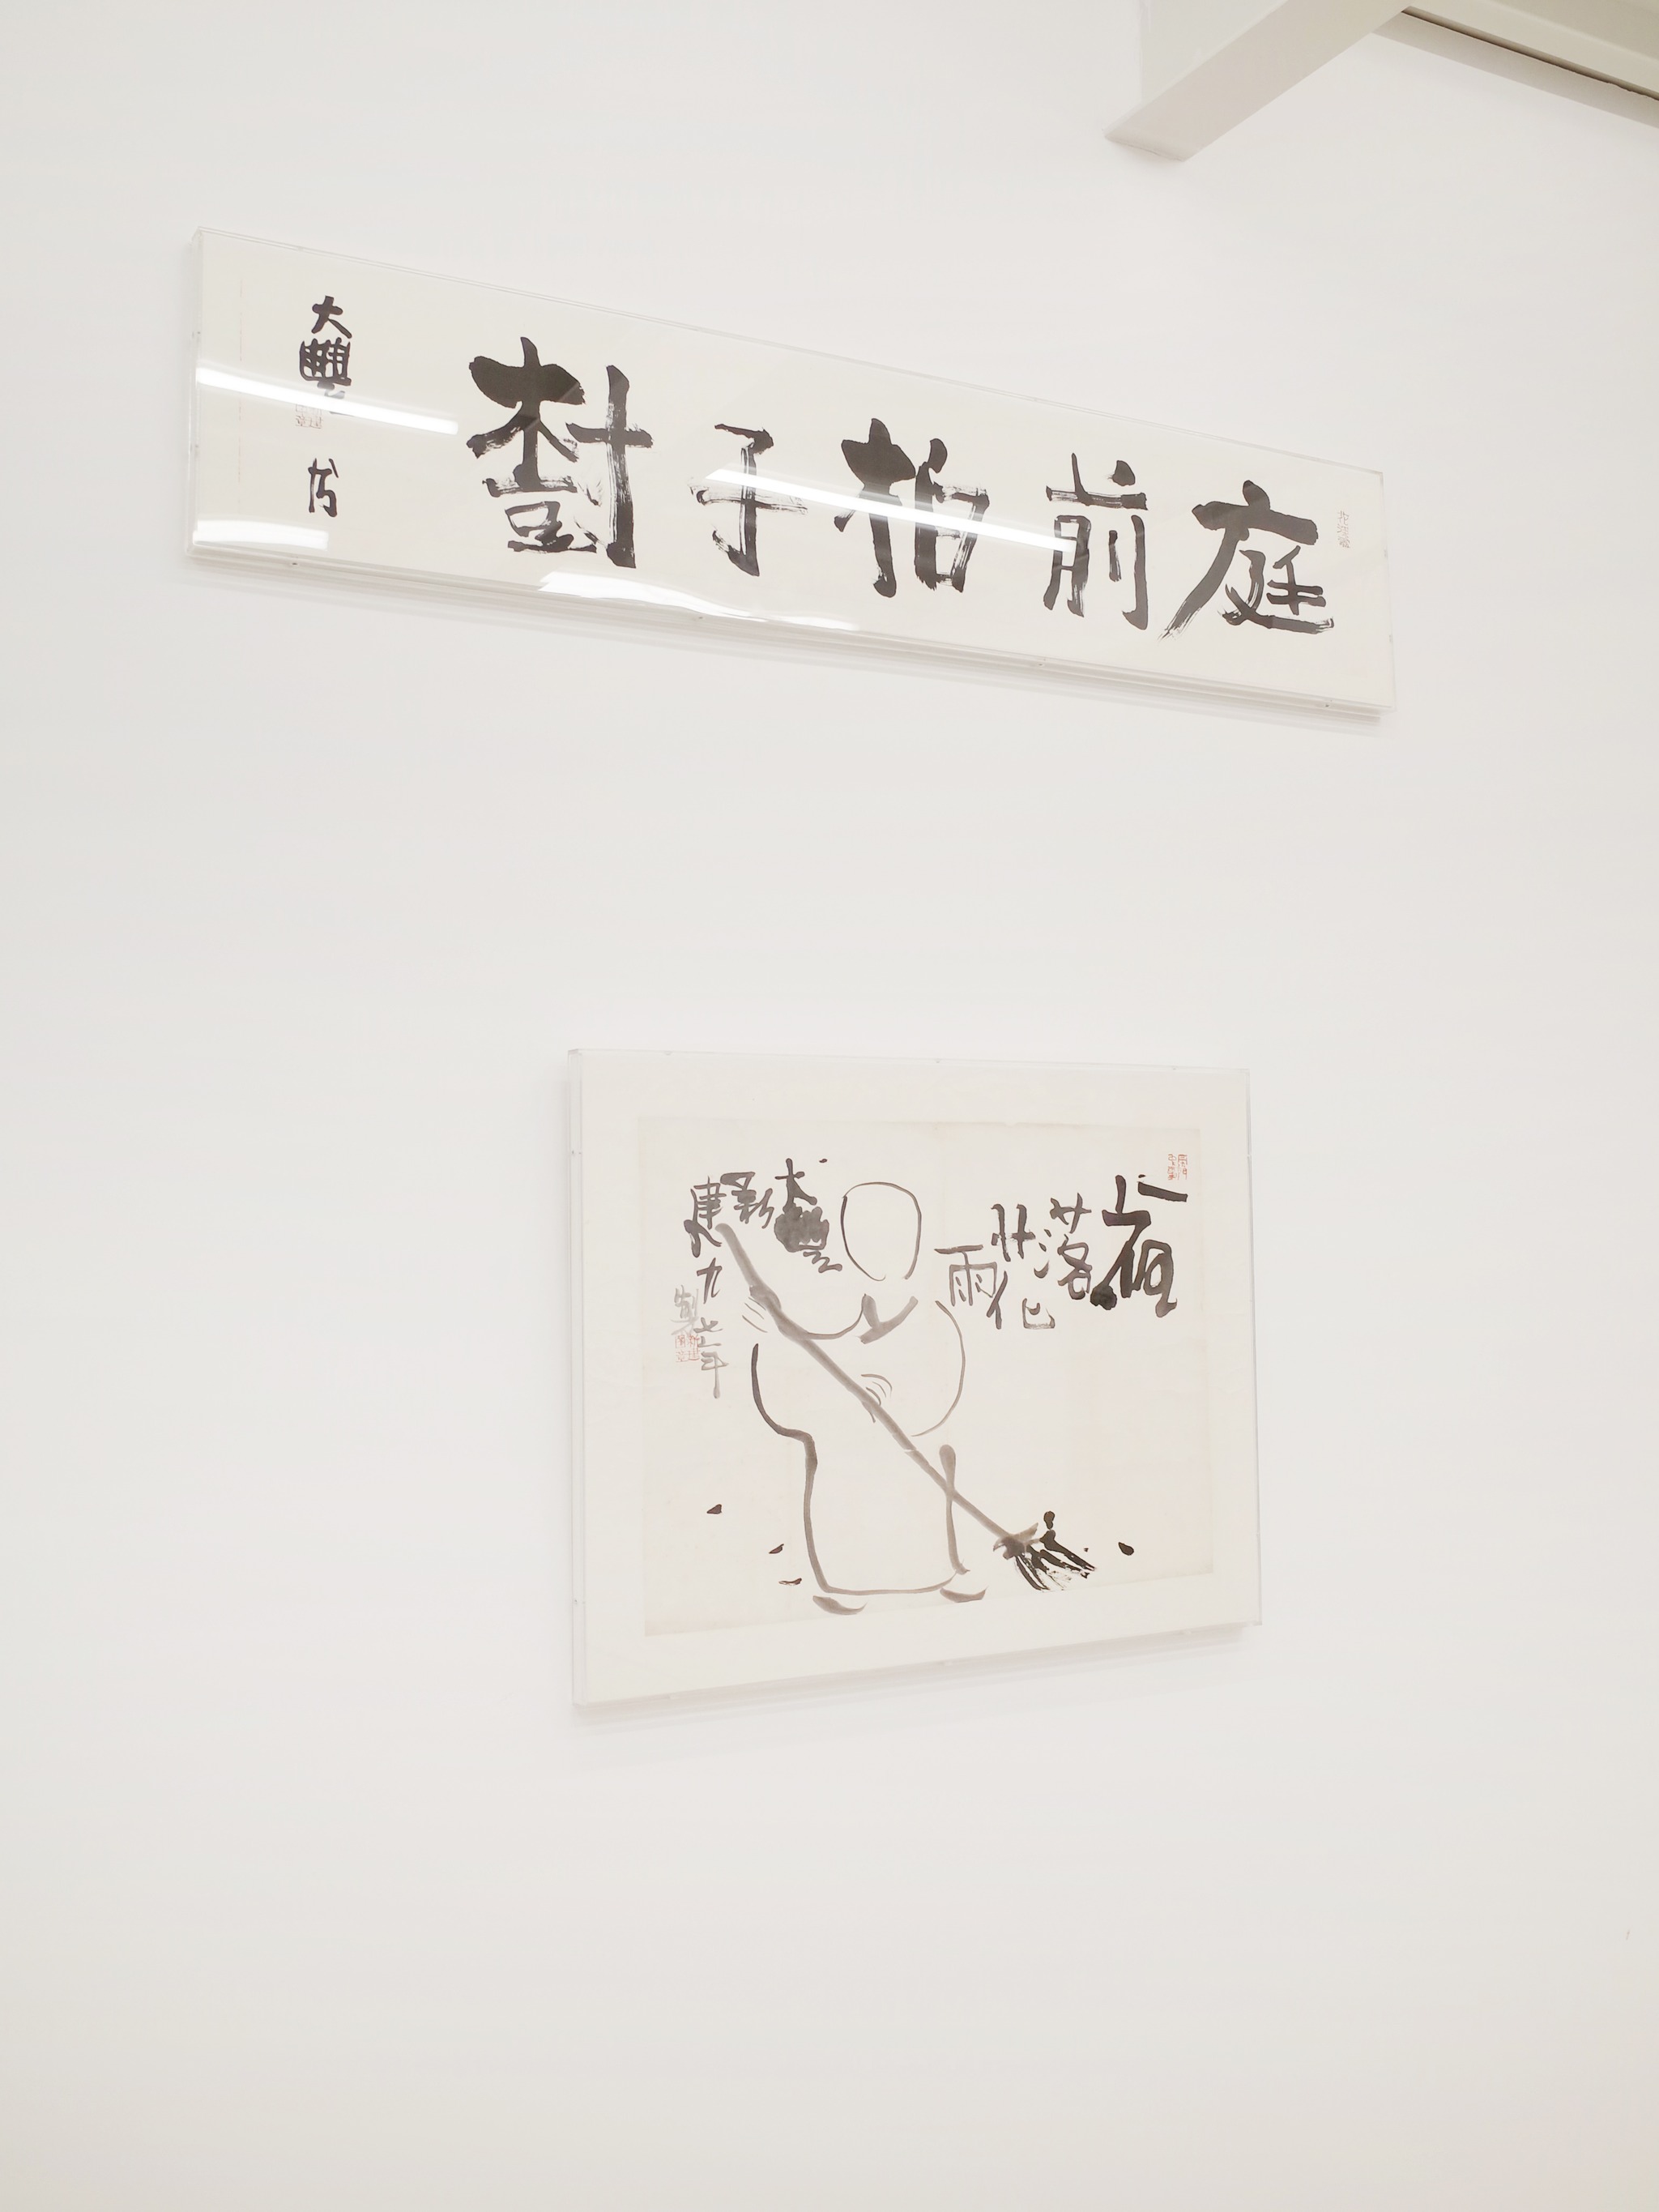 庭前柏子樹
大豐
一夜
落
花
雨
大豐
新
建九七年
製